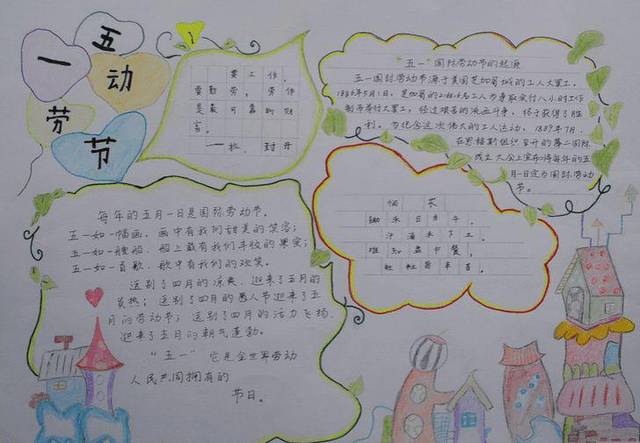 五
一 动
劳
节
要工作,
要勤劳。劳作
是最可靠的财
富。
——拉·封丹
“五一”国际劳动节的起源
五一国际劳动节源于美国芝加哥城的工人大罢工。
1886年5月1日,芝加哥的21.6万名工人为争取实行八小时工作
制而举行大罢工,经过艰苦的流血斗争,终于获得了胜
利。为纪念这次伟大的工人运动,1889年7月,
在恩格斯组织召开的第二国际
成立大会上宣布将每年的五
月一日定为国际劳动
节。
悯 农
锄禾日当午,
汗滴禾下土。
谁知盘中餐,
粒粒皆辛苦。
每年的五月一日是国际劳动节。
五一如一幅画,画中有我们甜美的笑容;
五一如一艘船,船上载有我们丰收的果实;
五一如一首歌,歌中有我们的欢笑。
送别了四月的凉爽,迎来了五月的
炎热;送别了四月的愚人节迎来了五
月的劳动节;送别了四月的活力飞扬,
迎来了五月的朝气蓬勃。
“五一”它是全世界劳动
人民共同拥有的
节日。